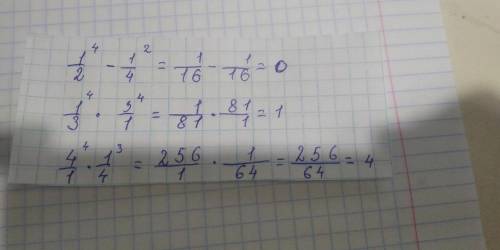 1/2⁴ - 1/4² = 1/16 - 1/16 = 0
1/3⁴ · 3/1⁴ = 1/81 · 81/1 = 1
4/1⁴ · 1/4³ = 256/1 · 1/64 = 256/64 = 4